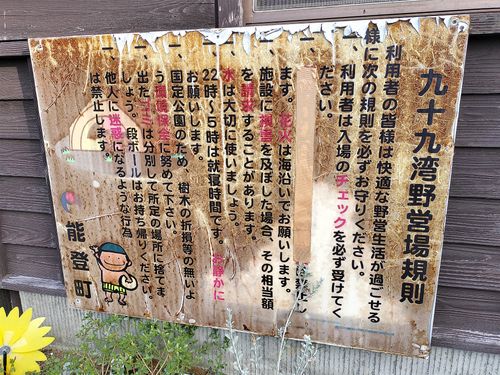 九十九湾野営場規則
利用者の皆様は快適な野営生活が過ごせる
様に次の規則を必ずお守りください。
一、利用者は入場のチェックを必ず受けてく
ださい。
ます。花火は海沿いでお願いします。
一、施設に損害を及ぼした場合、その相当額
を請求することがあります。
一、水は大切に使いましょう。
一、22時〜5時は就寝時間です。お静かに
お願いします。
一、国定公園のため、樹木の折損等の無いよ
う環境保全に努めて下さい。
一、出たゴミは分別して所定の場所に捨てま
しょう。段ボールはお持ち帰りください。
一、他人に迷惑になるような行為
は禁止します。
能登町